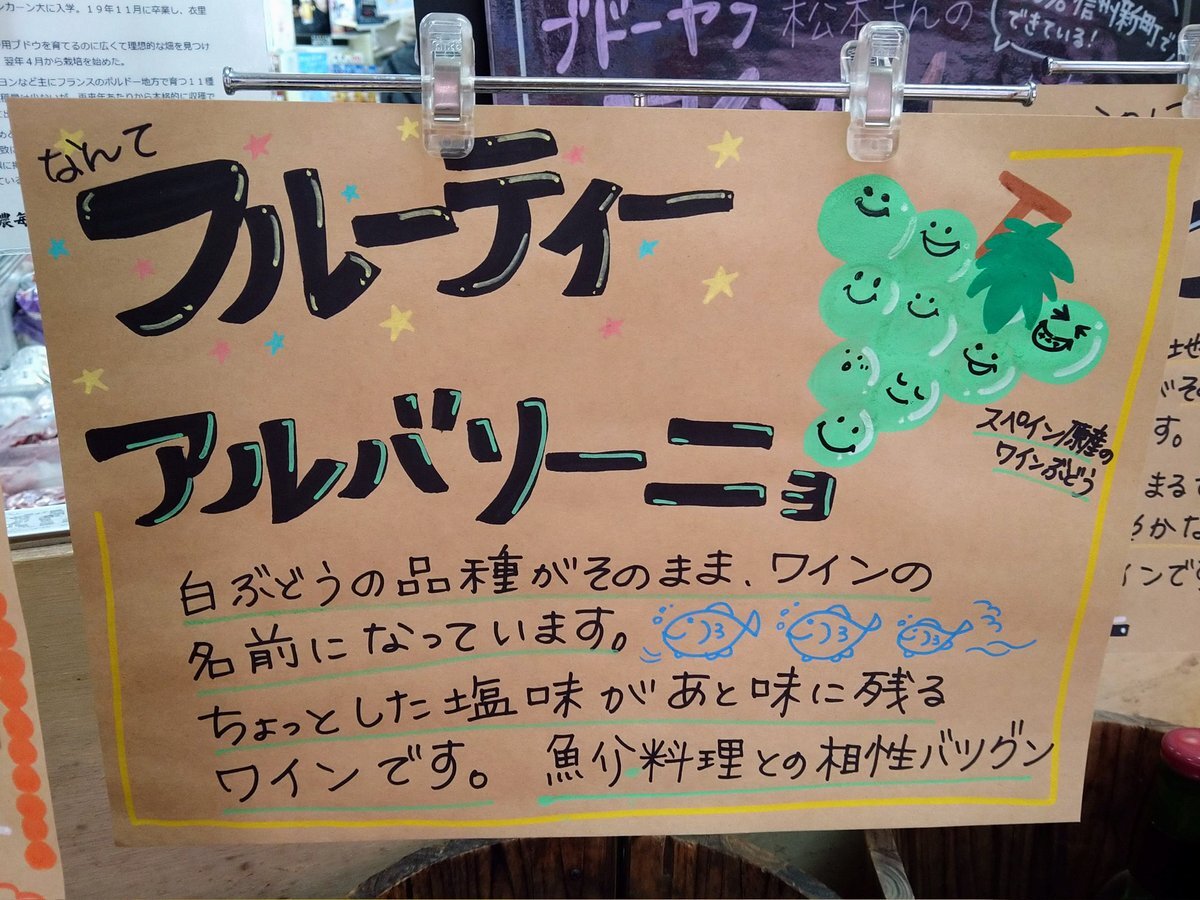 ンカーン大に入学。19年11月に卒業し、衣里
用ブドウを育てるのに広くて理想的な畑を見つけ
翌年4月から栽培を始めた。
ヨンなど主にフランスのボルドー地方で育つ11種
松本さんの
信州新町で
できている!
なんて
フルーティー
アルバリーニョ
スペイン原産の
ワインぶどう
白ぶどうの品種がそのまま、ワインの
名前になっています。
ちょっとした塩味があと味に残る
ワインです。 魚介料理との相性バツグン